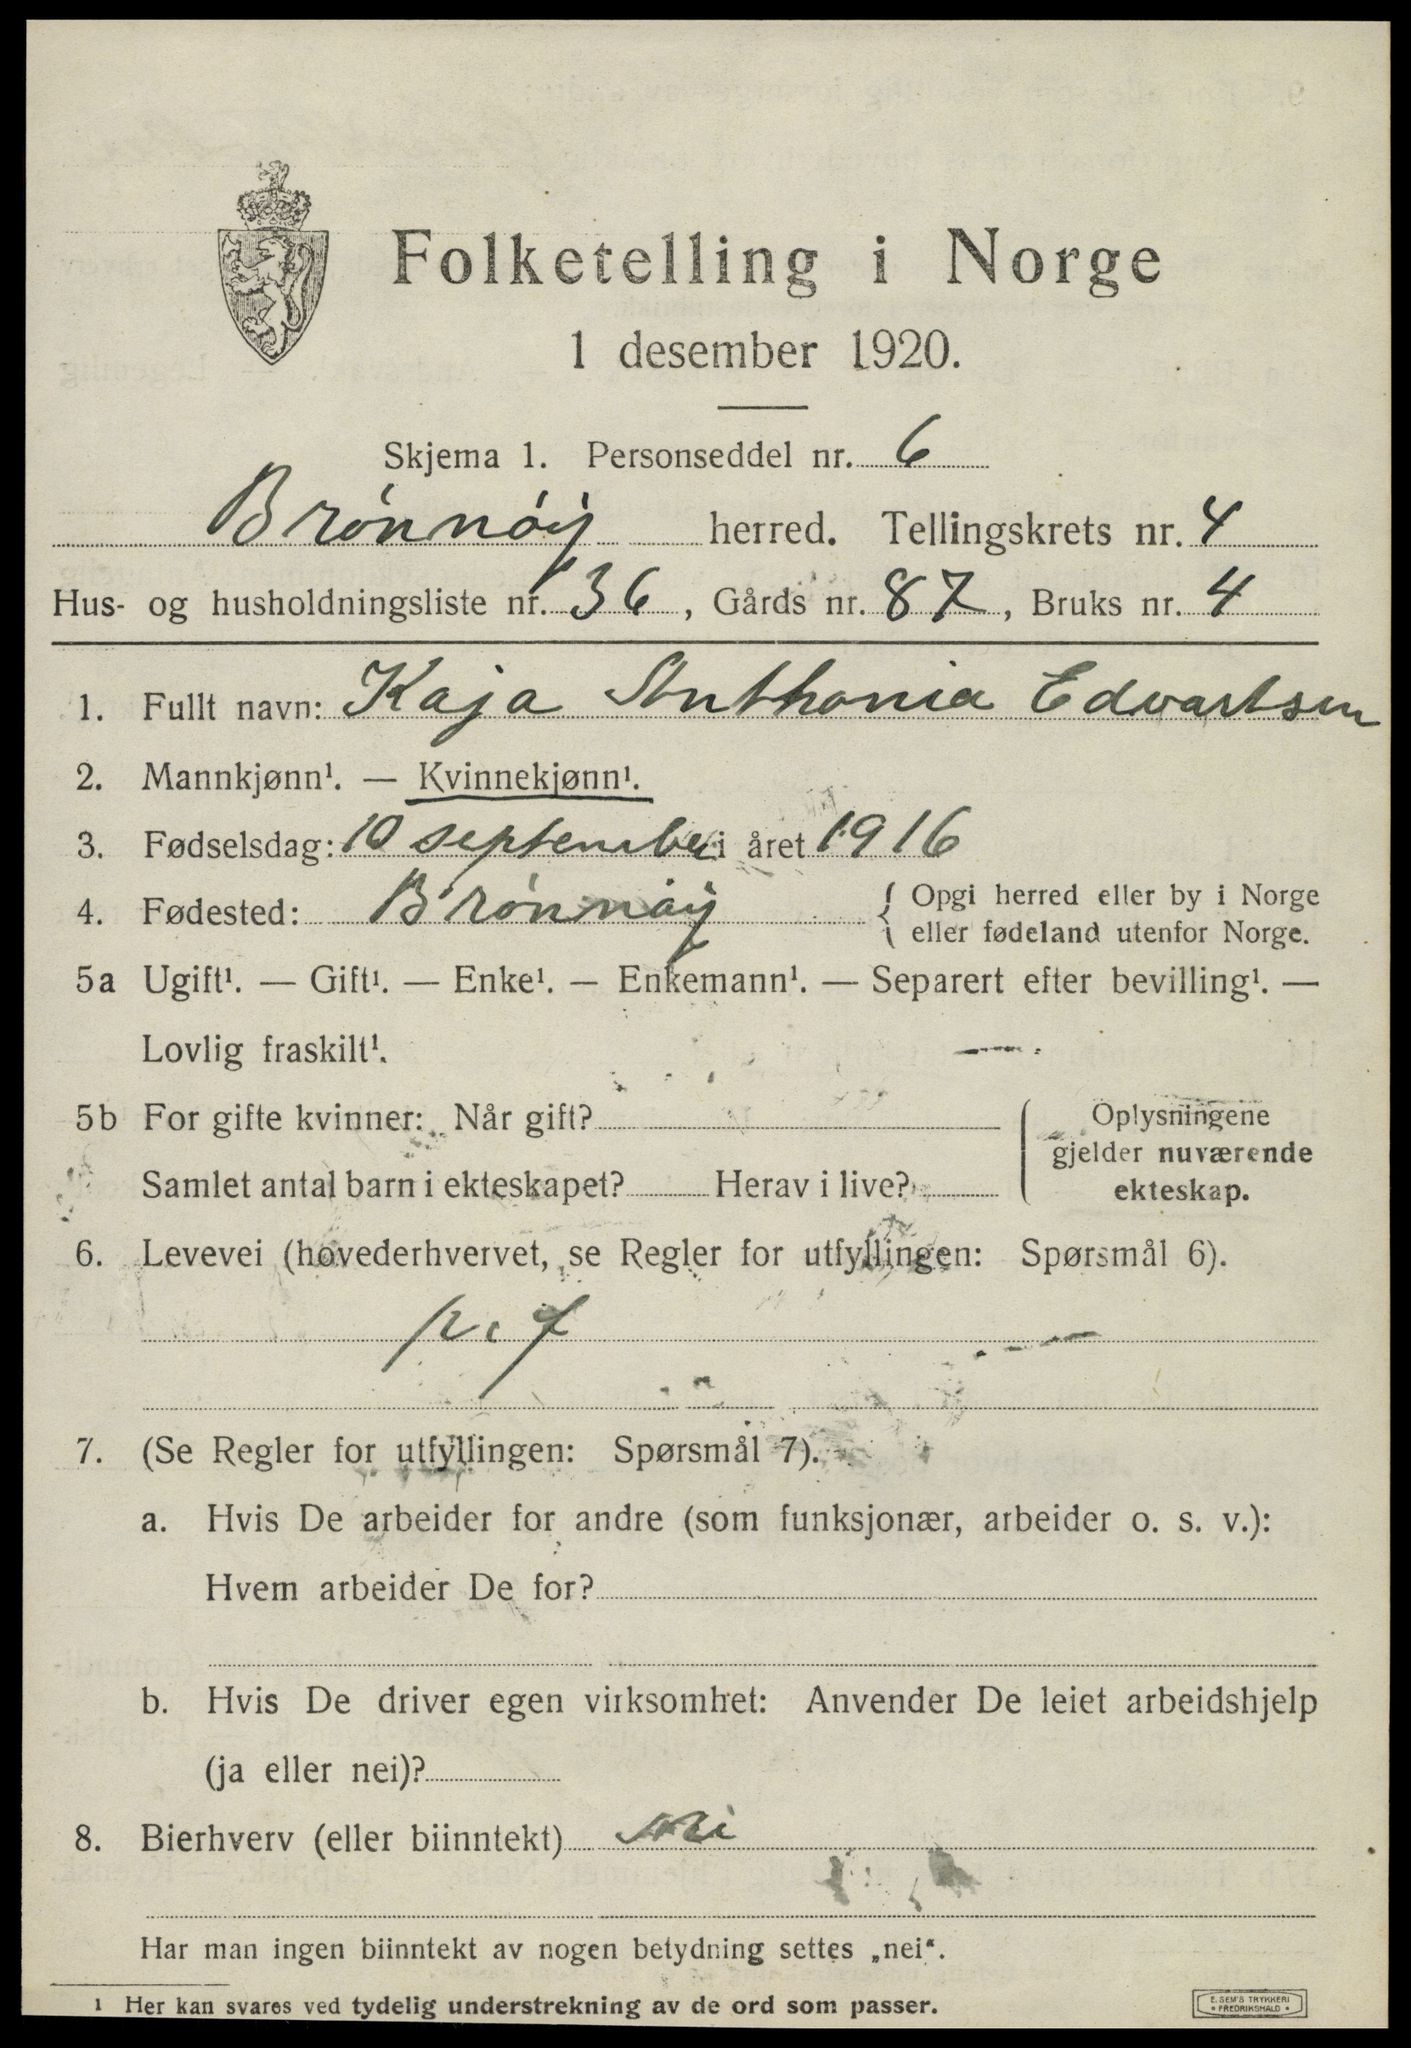 Folketelling i Norge
1 desember 1920.
Skjema 1. Personseddel nr. 6
Brønnøy herred. Tellingskrets nr. 4
Hus- og husholdningsliste nr. 36, Gårds nr. 87, Bruks nr. 4
1. Fullt navn: Kaja Anthonia Edvartsen
2. Mannkjønn¹. — Kvinnekjønn¹.
3. Fødselsdag: 10 september i året 1916
4. Fødested: Brønnøy { Opgi herred eller by i Norge
eller fødeland utenfor Norge.
5a Ugift¹. — Gift¹. — Enke¹. — Enkemann¹. — Separert efter bevilling¹. —
Lovlig fraskilt¹.
5b For gifte kvinner: Når gift?
Samlet antal barn i ekteskapet? Herav i live?
Oplysningene
gjelder nuværende
ekteskap.
6. Levevei (hovederhvervet, se Regler for utfyllingen: Spørsmål 6).
7. (Se Regler for utfyllingen: Spørsmål 7).
a. Hvis De arbeider for andre (som funksjonær, arbeider o. s. v.):
Hvem arbeider De for?
b. Hvis De driver egen virksomhet: Anvender De leiet arbeidshjelp
(ja eller nei)?
8. Bierhverv (eller biinntekt) nei
Har man ingen biinntekt av nogen betydning settes „nei“.
1 Her kan svares ved tydelig understrekning av de ord som passer.
E. SEM'S TRYKKERI
FREDRIKSHALD